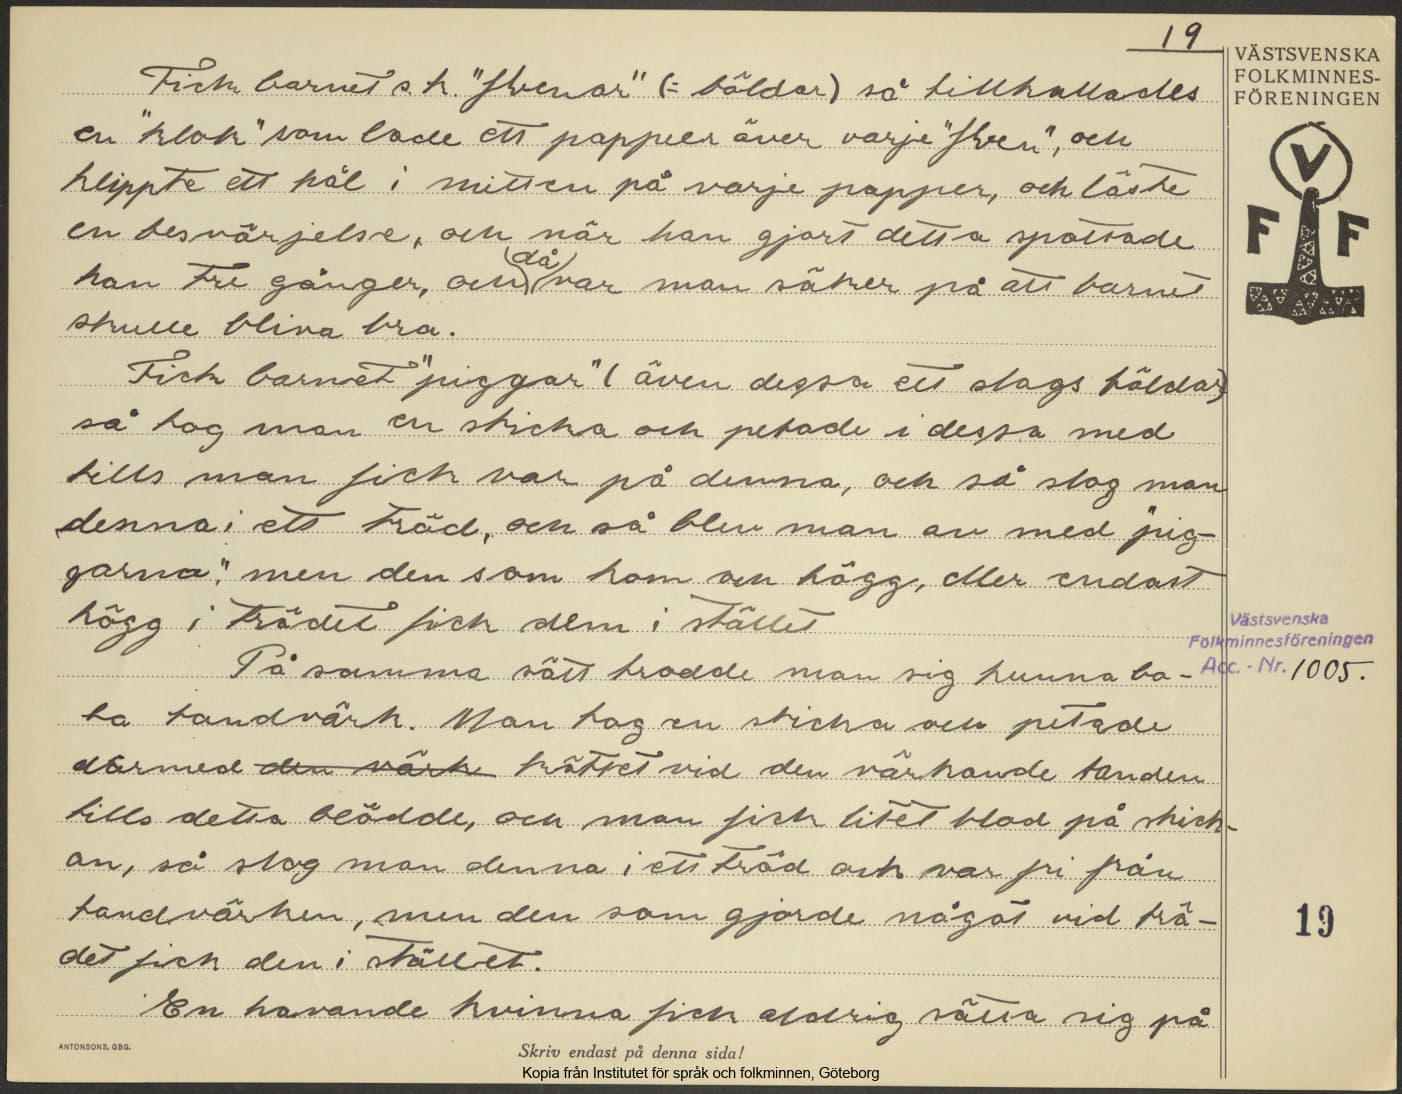 19
VÄSTSVENSKA
FOLKMINNES-
FÖRENINGEN
V
F F
Fick barnet s.k. "skvenor" (= bölder) så tillkallades
en "klok" som lade ett papper över varje "skven", och
klippte ett hål i mitten på varje papper, och läste
en besvärjelse, och när han gjort detta spottade
han tre gånger, och (då) var man säker på att barnet
skulle bliva bra.
Fick barnet "piggar" (även dessa ett slags böldar)
så tog man en sticka och petade i dessa med
tills man fick var på denna, och så slog man
denna i ett träd, och så blev man av med "pig-
garna", men den som kom och högg, eller endast
högg i trädet fick dem i stället
På samma sätt trodde man sig kunna bo-
ta tandvärk. Man tog en sticka och petade
därmed den värk köttet vid den värkande tanden
tills detta blödde, och man fick litet blod på stick-
an, så slog man denna i ett träd och var fri från
tandvärken, men den som gjorde något vid trä-
det fick den i stället.
En havande kvinna fick aldrig sätta sig på
Västsvenska
Folkminnesföreningen
Acc. - Nr. 1005.
19
ANTONSONS, GBG.
Skriv endast på denna sida!
Kopia från Institutet för språk och folkminnen, Göteborg